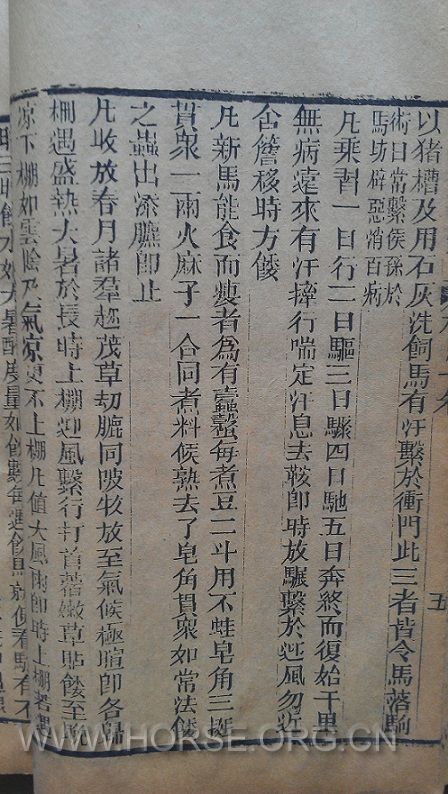 以猪槽及用石灰洗飼馬有汗繫於衝門此三者皆令馬落駒
術曰常繫猴孫於
馬坊辟惡消百病
凡乘習一日行二日驅三日驟四日馳五日奔終而復始千里
無病遠來有汗擇行喘定汗息去鞍即時放驟繫於迎風勿近
舍簷移時方餧
凡新馬能食而瘦者為有蟲蟄每煮豆二斗用不蛀皂角三挺
貫衆二兩火麻子一合同煮料候熟去了皂角貫衆如常法餧
之蟲出添臕即止
凡收放春月諸羣趂茂草刧臕同陂牧放至氣候極暄即各歸
棚遇盛熱大暑於長時上棚迎風繫行打首蓿嫩草貼餧至晚
凉下棚如雲陰乃氣凉更不上棚凡值大風雨即時上棚若遇
五
WWW.HORSE.ORG.CN